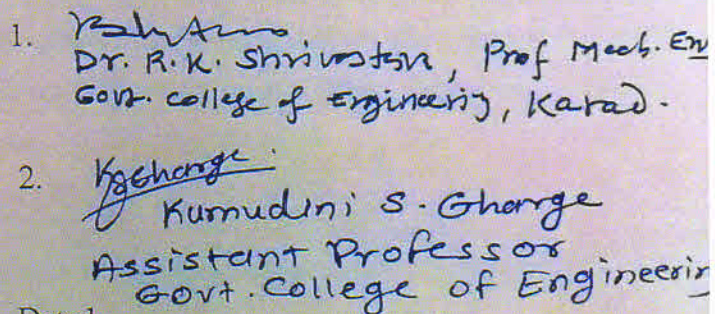 1.
Dr. R. K. Shrivastava, Prof Mech. En
Govt. College of Engineering, Karad.
2. KSGharge
Kumudini S. Gharge
Assistant Professor
Govt. College of Engineerin